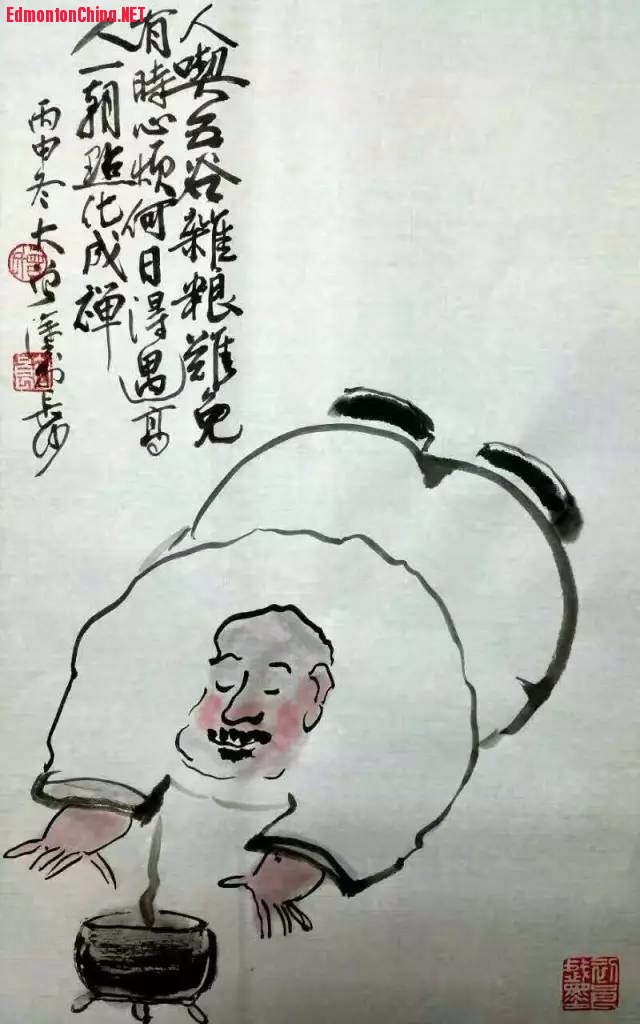 EdmontonChing.NET
人喫五谷雜粮難免
有時心煩何日得遇高
人一朝點化成禅
丙申冬大